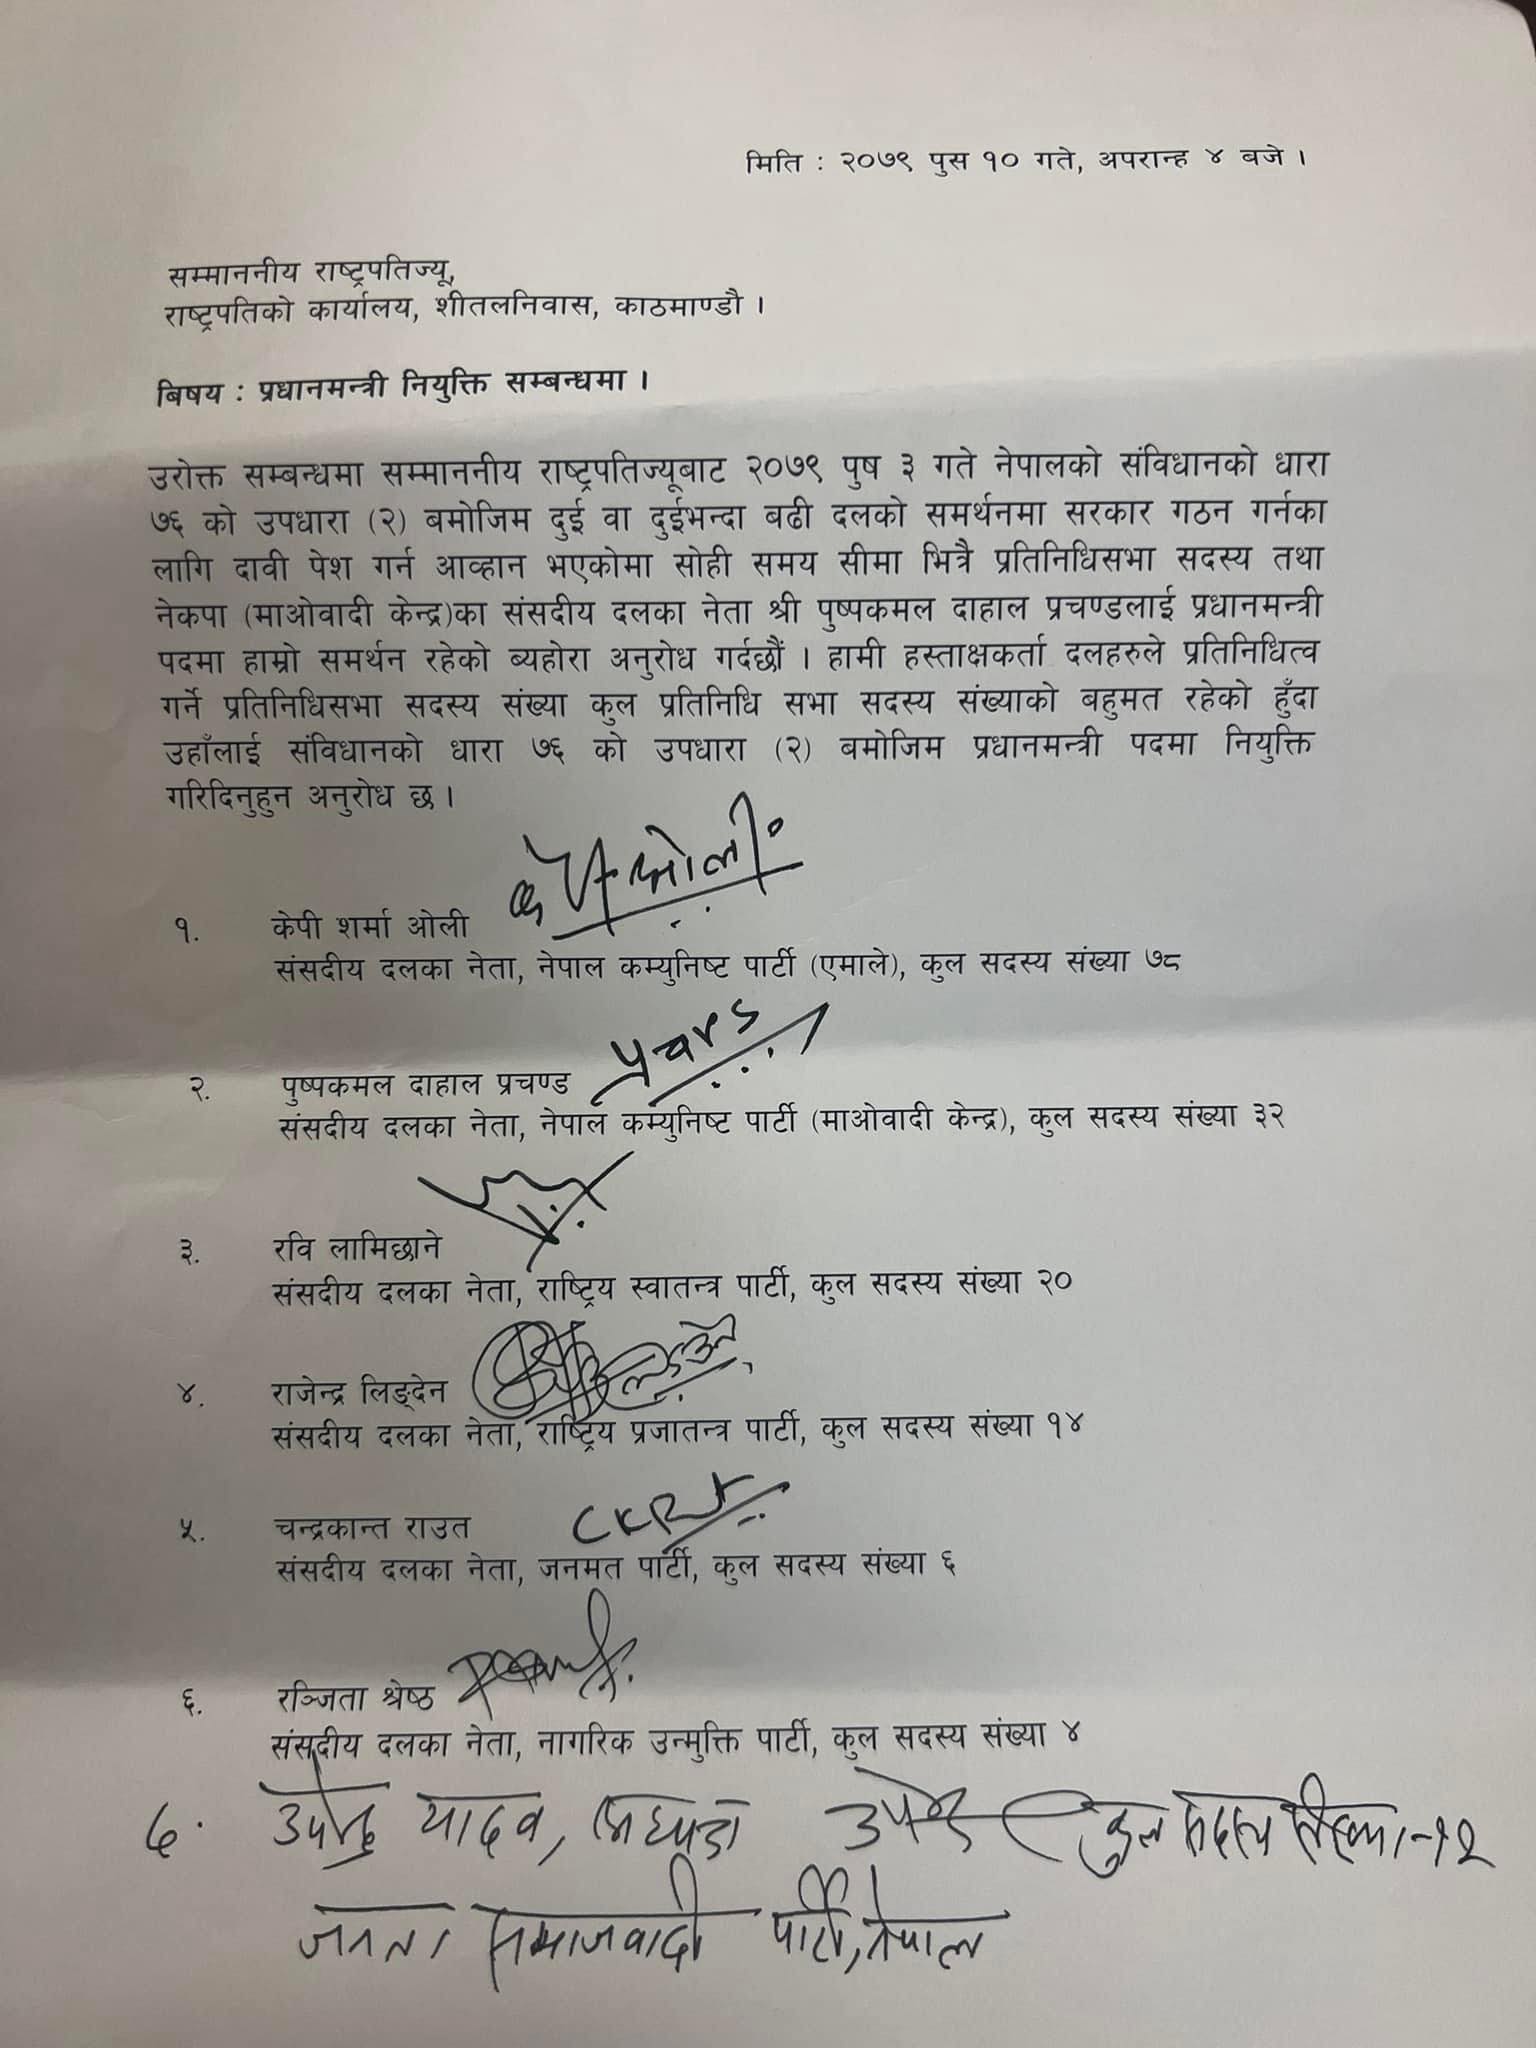 मिति : २०७९ पुस १० गते, अपरान्ह ४ बजे ।
सम्माननीय राष्ट्रपतिज्यू,
राष्ट्रपतिको कार्यालय, शीतलनिवास, काठमाण्डौ ।
बिषय : प्रधानमन्त्री नियुक्ति सम्बन्धमा ।
उरोक्त सम्बन्धमा सम्माननीय राष्ट्रपतिज्यूबाट २०७९ पुष ३ गते नेपालको संविधानको धारा
७६ को उपधारा (२) बमोजिम दुई वा दुईभन्दा बढी दलको समर्थनमा सरकार गठन गर्नका
लागि दावी पेश गर्न आव्हान भएकोमा सोही समय सीमा भित्रै प्रतिनिधिसभा सदस्य तथा
नेकपा (माओवादी केन्द्र)का संसदीय दलका नेता श्री पुष्पकमल दाहाल प्रचण्डलाई प्रधानमन्त्री
पदमा हाम्रो समर्थन रहेको ब्यहोरा अनुरोध गर्दछौं । हामी हस्ताक्षकर्ता दलहरुले प्रतिनिधित्व
गर्ने प्रतिनिधिसभा सदस्य संख्या कुल प्रतिनिधि सभा सदस्य संख्याको बहुमत रहेको हुँदा
उहाँलाई संविधानको धारा ७६ को उपधारा (२) बमोजिम प्रधानमन्त्री पदमा नियुक्ति
गरिदिनुहुन अनुरोध छ ।
१. केपी शर्मा ओली
संसदीय दलका नेता, नेपाल कम्युनिष्ट पार्टी (एमाले), कुल सदस्य संख्या ७८
२. पुष्पकमल दाहाल प्रचण्ड
संसदीय दलका नेता, नेपाल कम्युनिष्ट पार्टी (माओवादी केन्द्र), कुल सदस्य संख्या ३२
३. रवि लामिछाने
संसदीय दलका नेता, राष्ट्रिय स्वातन्त्र पार्टी, कुल सदस्य संख्या २०
४. राजेन्द्र लिङ्देन
संसदीय दलका नेता, राष्ट्रिय प्रजातन्त्र पार्टी, कुल सदस्य संख्या १४
५. चन्द्रकान्त राउत
संसदीय दलका नेता, जनमत पार्टी, कुल सदस्य संख्या ६
६. रञ्जिता श्रेष्ठ
संसदीय दलका नेता, नागरिक उन्मुक्ति पार्टी, कुल सदस्य संख्या ४
७. उपेन्द्र यादव, कुल सदस्य संख्या-१२
जनता समाजवादी पार्टी, नेपाल